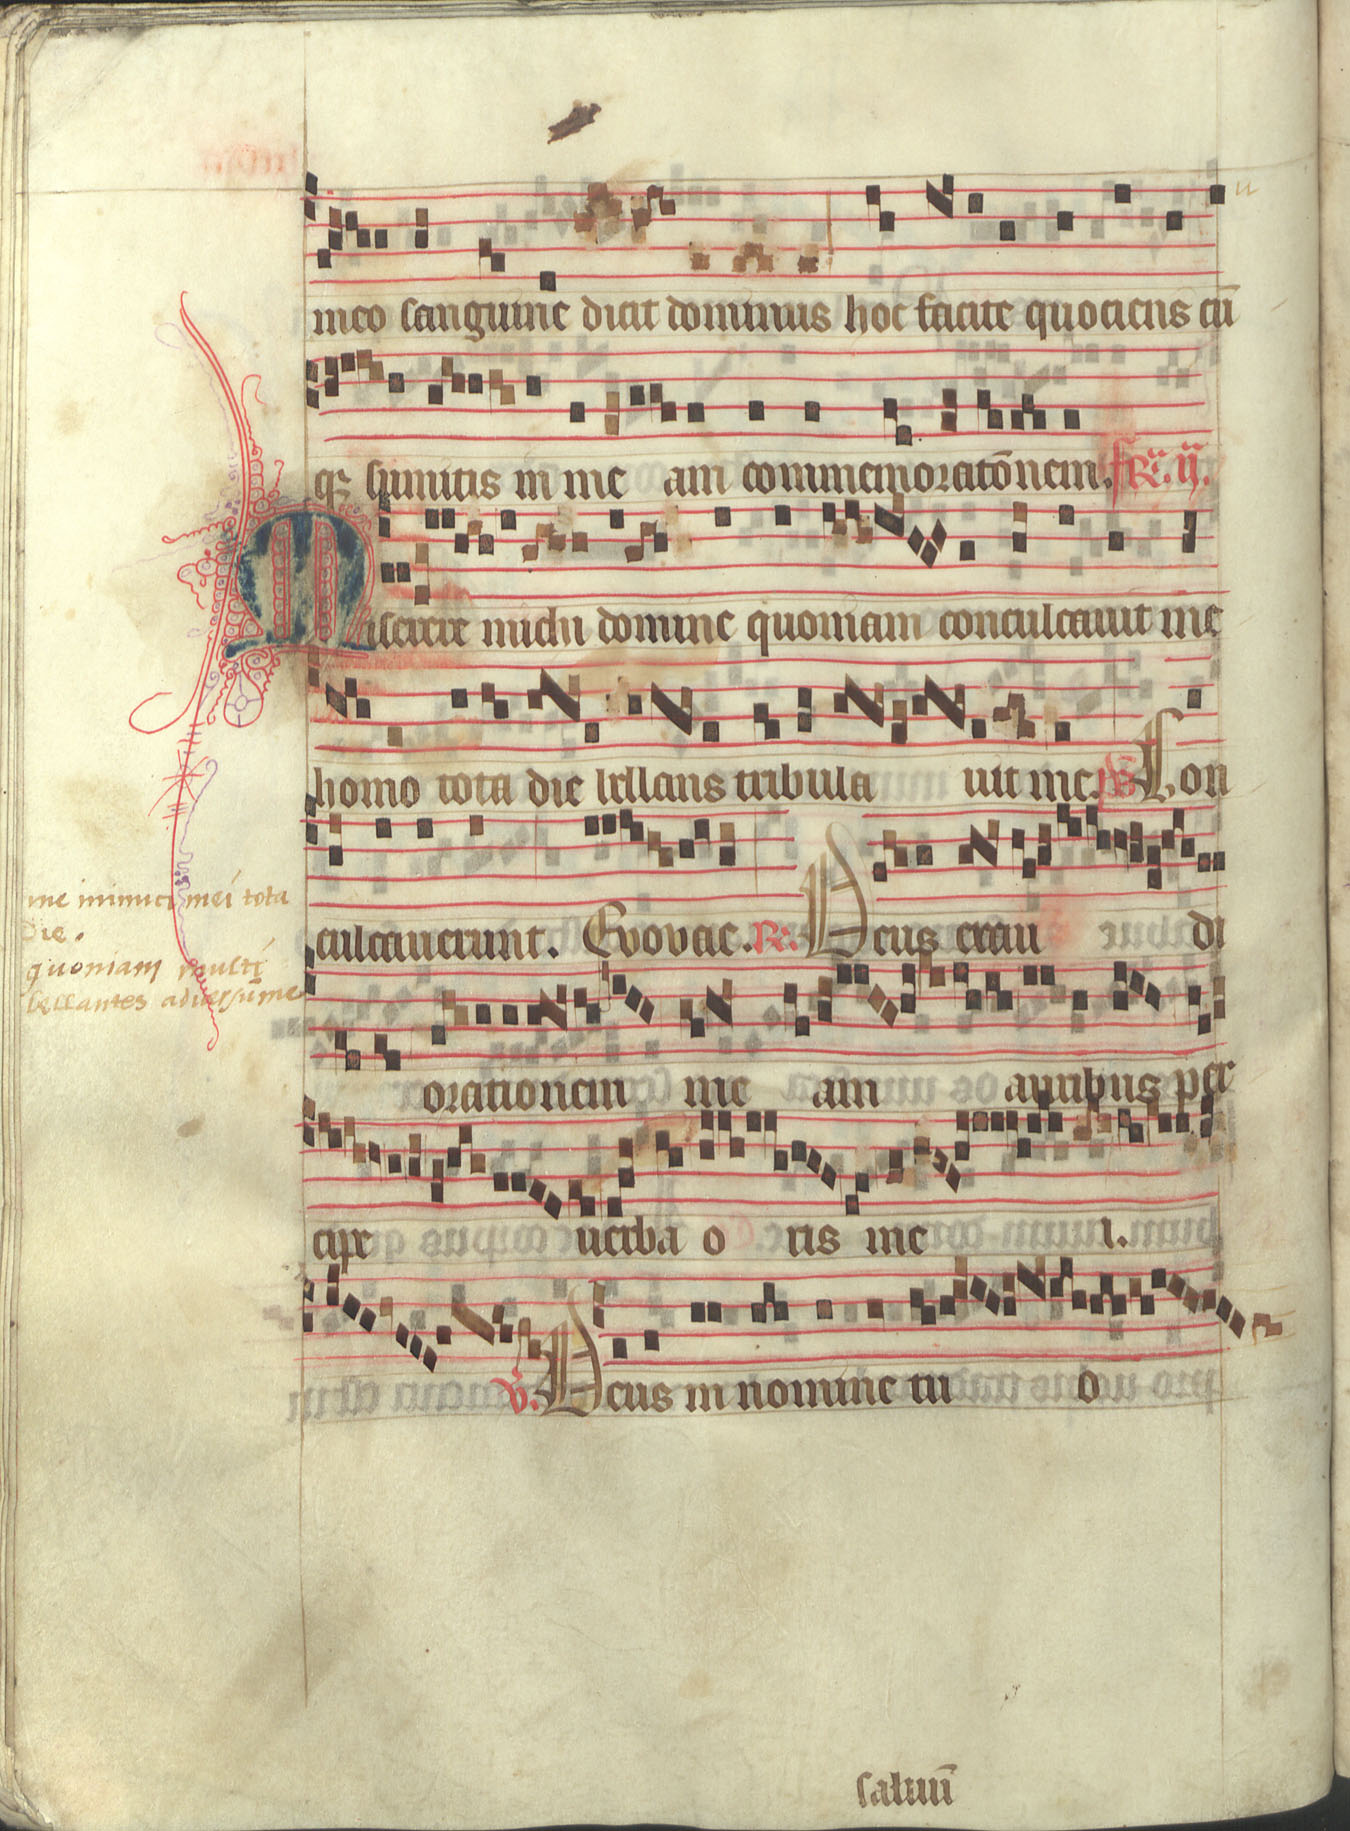 meo sanguine dicit dominus hoc facite quociens cū
qꝫ sumitis in me am commemoratōnem. fR. ij.
Miserere michi domine quoniam conculcauit me
homo tota die bellans tribula uit me. Ps Con
culcauerunt. Evovae. R. Deus exau di
me inimici mei tota
die.
quoniam multi
bellantes aduersū me
orationem me am auribus per
cipe uerba o ris me i.
V. Deus in nomine tu o
saluū